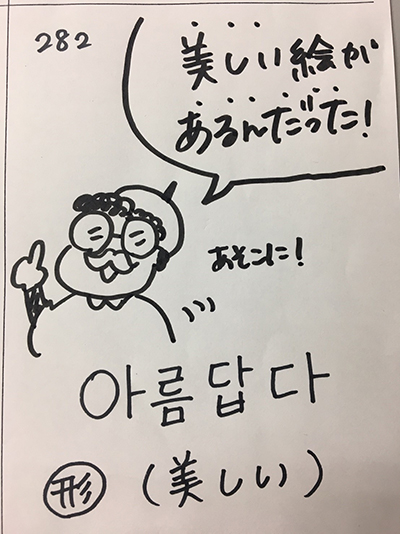 282
美しい絵が
あるんだった!
あそこに!
아름답다
形 (美しい)